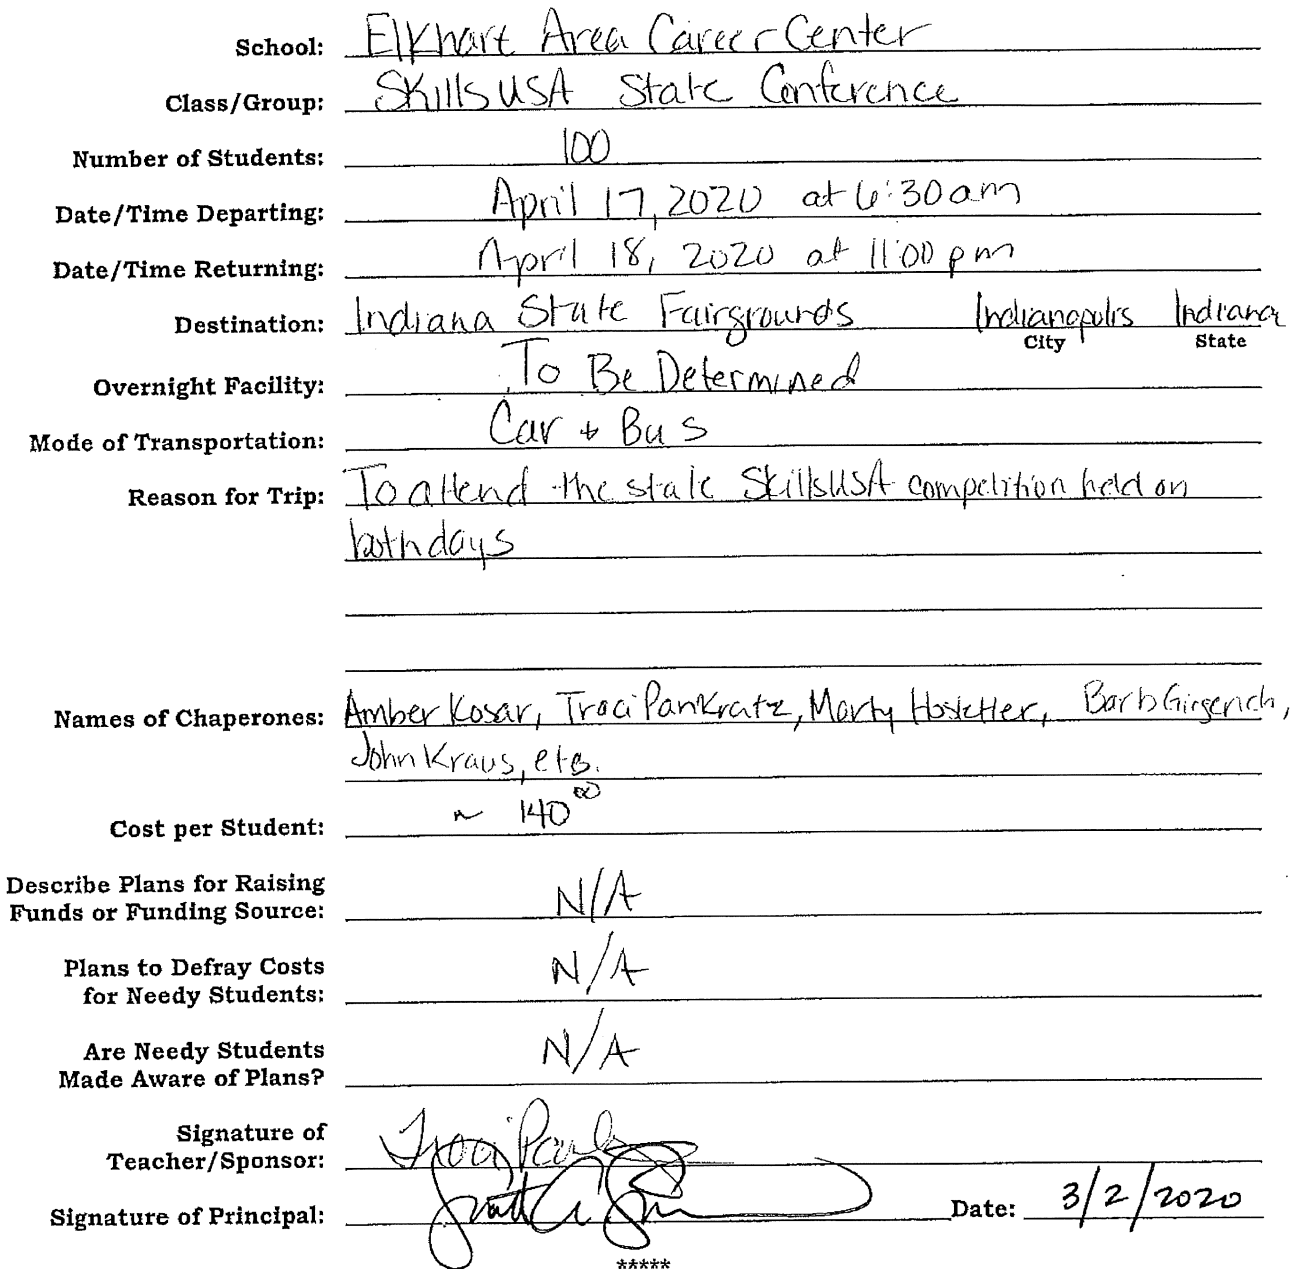 School: Elkhart Area Career Center
Class/Group: SkillsUSA State Conference
Number of Students: 100
Date/Time Departing: April 17, 2020 at 6:30am
Date/Time Returning: April 18, 2020 at 11:00 pm
Destination: Indiana State Fairgrounds Indianapolis Indiana
City State
Overnight Facility: To Be Determined
Mode of Transportation: Car + Bus
Reason for Trip: To attend the state SkillsUSA competition held on
both days
Names of Chaperones: Amber Kosar, Traci Pankratz, Marty Hostetler, Barb
John Kraus, etc.
Cost per Student: ~ 140⁰⁰
Describe Plans for Raising
Funds or Funding Source: N/A
Plans to Defray Costs
for Needy Students: N/A
Are Needy Students
Made Aware of Plans? N/A
Signature of
Teacher/Sponsor: Traci
Signature of Principal: Date: 3/2/2020
*****